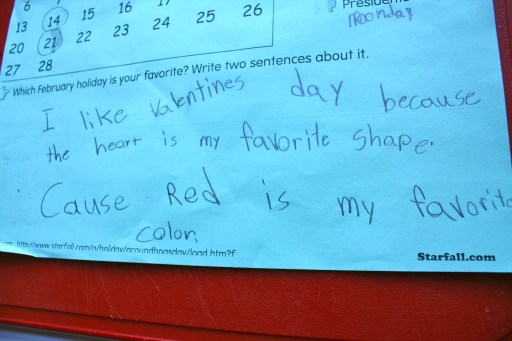 6
13 14 15 16
20 21 22 23 24 25 26
27 28
Moonday
Which February holiday is your favorite? Write two sentences about it.
I like Valentines day because
the heart is my favorite shape.
Cause Red is my favorite
color.
http://www.starfall.com/n/holiday/groundhogsday/load.htm?f
Starfall.com